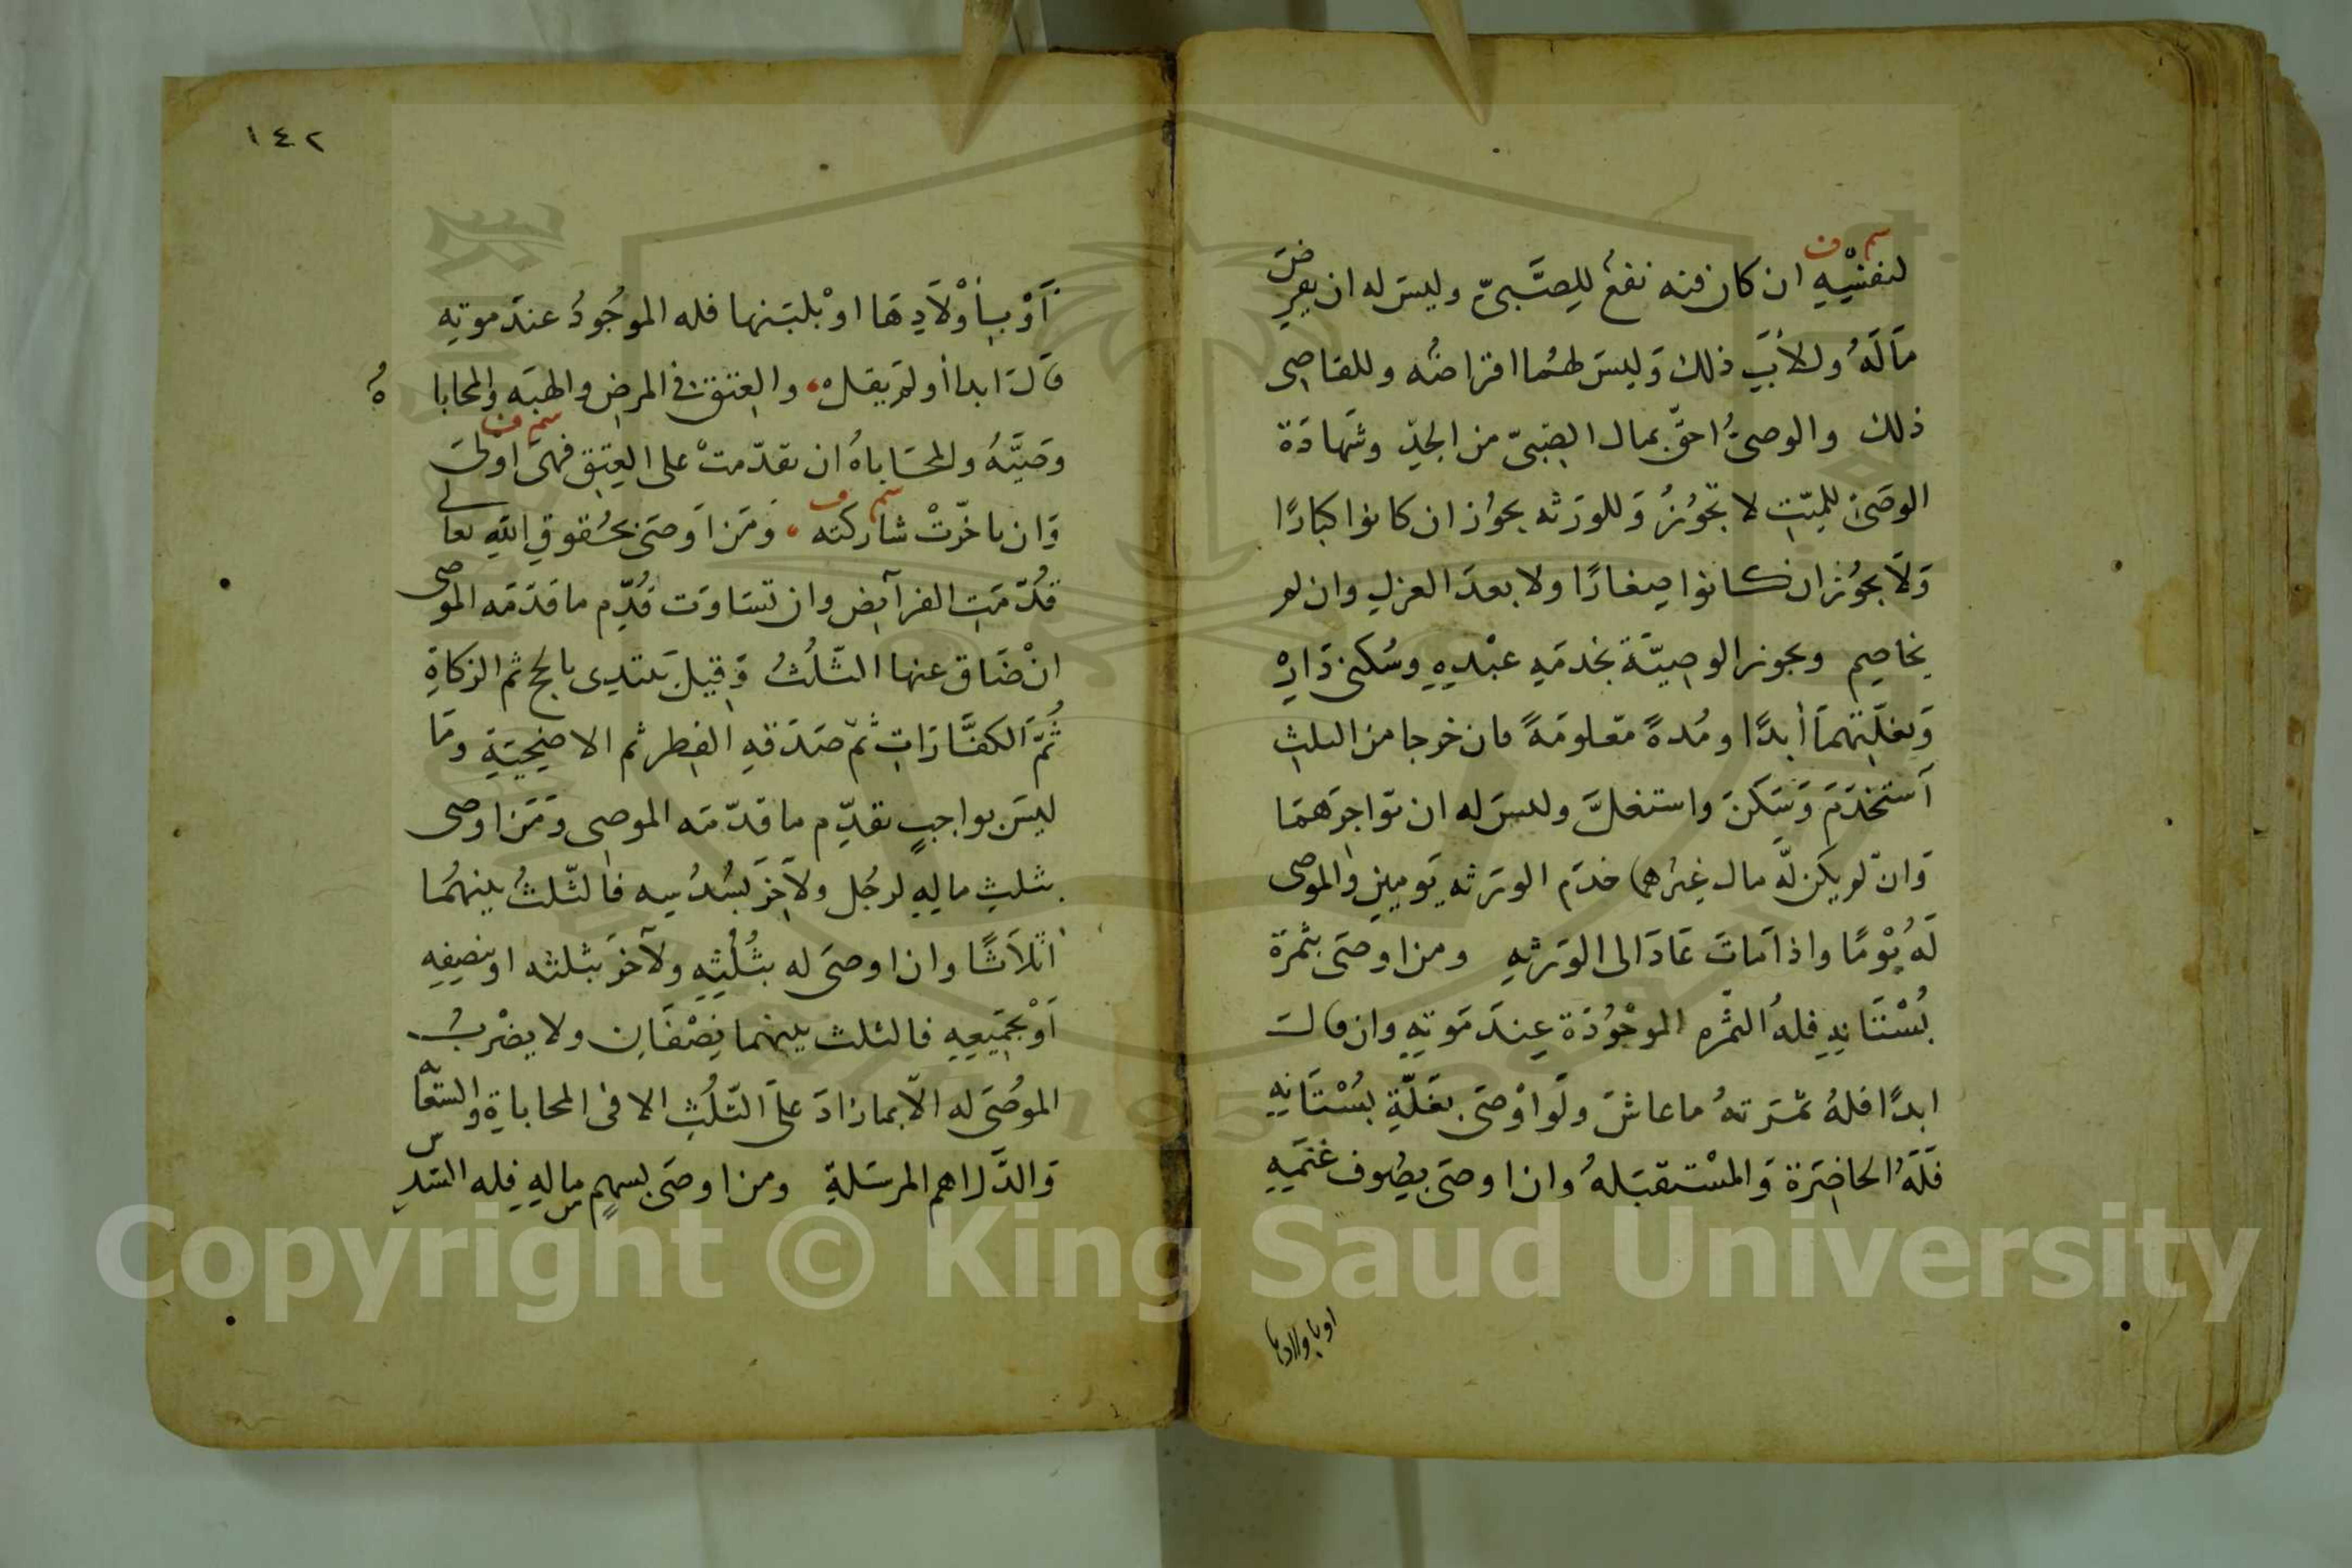 لنفسه ان كان فيه نفع للصبي وليس له ان يقرض
سم ف
ماله وللاب ذلك وليس لهما اقتراضه وللقاضى
ذلك والوصى احق بمال الصبى من الجد وشهادة
الوصى للميت لا تجوز وللورثه يجوز ان كانوا كبارا
ولا يجوز ان كانوا صغارا ولا بعد العزل وان لم
يخاصم ويجوز الوصية بخدمه عبده وسكنى داره
وبغلتهما أبدا ومدة معلومة فان خرجا من الثلث
استخدم وسكن واستغل وليس له ان يواجرهما
وان لم يكن له مال غيرهما خدم الورثه يومين والموصى
له يوما واذا مات عاد الى الورثه ومن اوصى بثمرة
بستانه فله الثمره الموجودة عند موته وان قال
ابدا فله ثمرته ما عاش ولو اوصى بغلة بستانه
فله الحاضرة والمستقبله وان اوصى بصوف غنمه
او باولادها
١٤٢
أو بأولادها او بلبنها فله الموجود عند موته
قال ابدا أو لم يقل، والعتق فى المرض والهبه والمحاباه
وصيه والمحاباه ان تقدمت على العتق فهى اولى
سم ف
وان تاخرت شاركته، ومن اوصى بحقوق الله تعالى
سم ف
قدمت الفرآيض وان تساوت قدم ما قدمه الموصى
ان ضاق عنها الثلث وقيل يبتدى بالحج ثم الزكاة
ثم الكفارات ثم صدقه الفطر ثم الاضحية وما
ليس بواجب يقدم ما قدمه الموصى ومن اوصى
بثلث ماله لرجل ولآخر بسدسه فالثلث بينهما
اثلاثا وان اوصى له بثلثه ولآخر بثلثه او بنصفه
او بجميعه فالثلث بينهما نصفان ولا يضرب
الموصى له الا بما زاد على الثلث الا فى المحاباة والسعايه
والدراهم المرسلة ومن اوصى بسهم من ماله فله السدس
Copyright © King Saud University